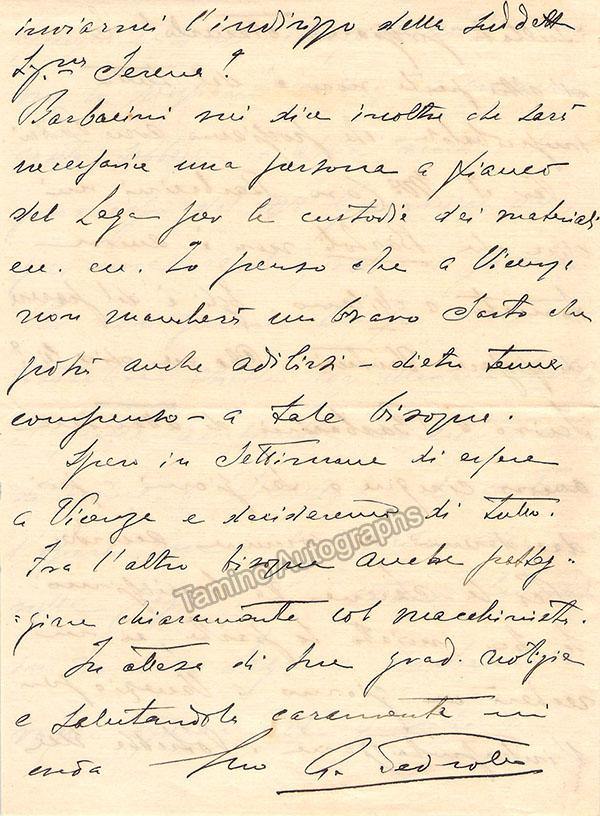 inviarmi l'indirizzo della suddetta
Sig.na Serena?
Barbacini mi dice inoltre che sarà
necessaria una persona a fianco
del Lega per la custodia dei materiali
ecc. ecc. Io penso che a Vicenza
non mancherà un bravo Sarto che
potrà anche adibirsi - dietro tenue
compenso - a tale bisogna.
Spero in Settimana di essere
a Vicenza e decideremo di tutto.
Fra l'altro bisogna anche patteg=
=giare chiaramente col macchinista.
In attesa di sue grad. notizie
e salutandola caramente mi
creda Suo G.
Tamino Autographs